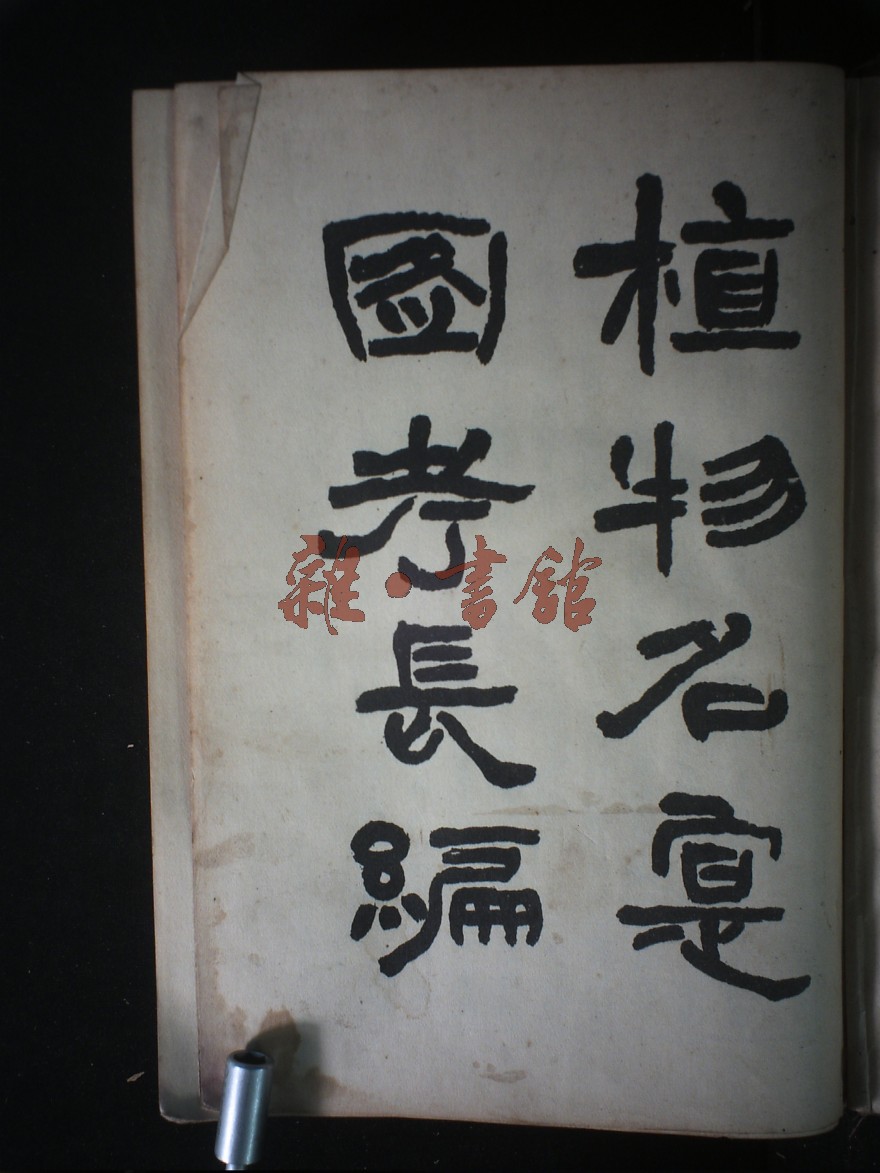 植物名寔
圖考長編
雜·書館